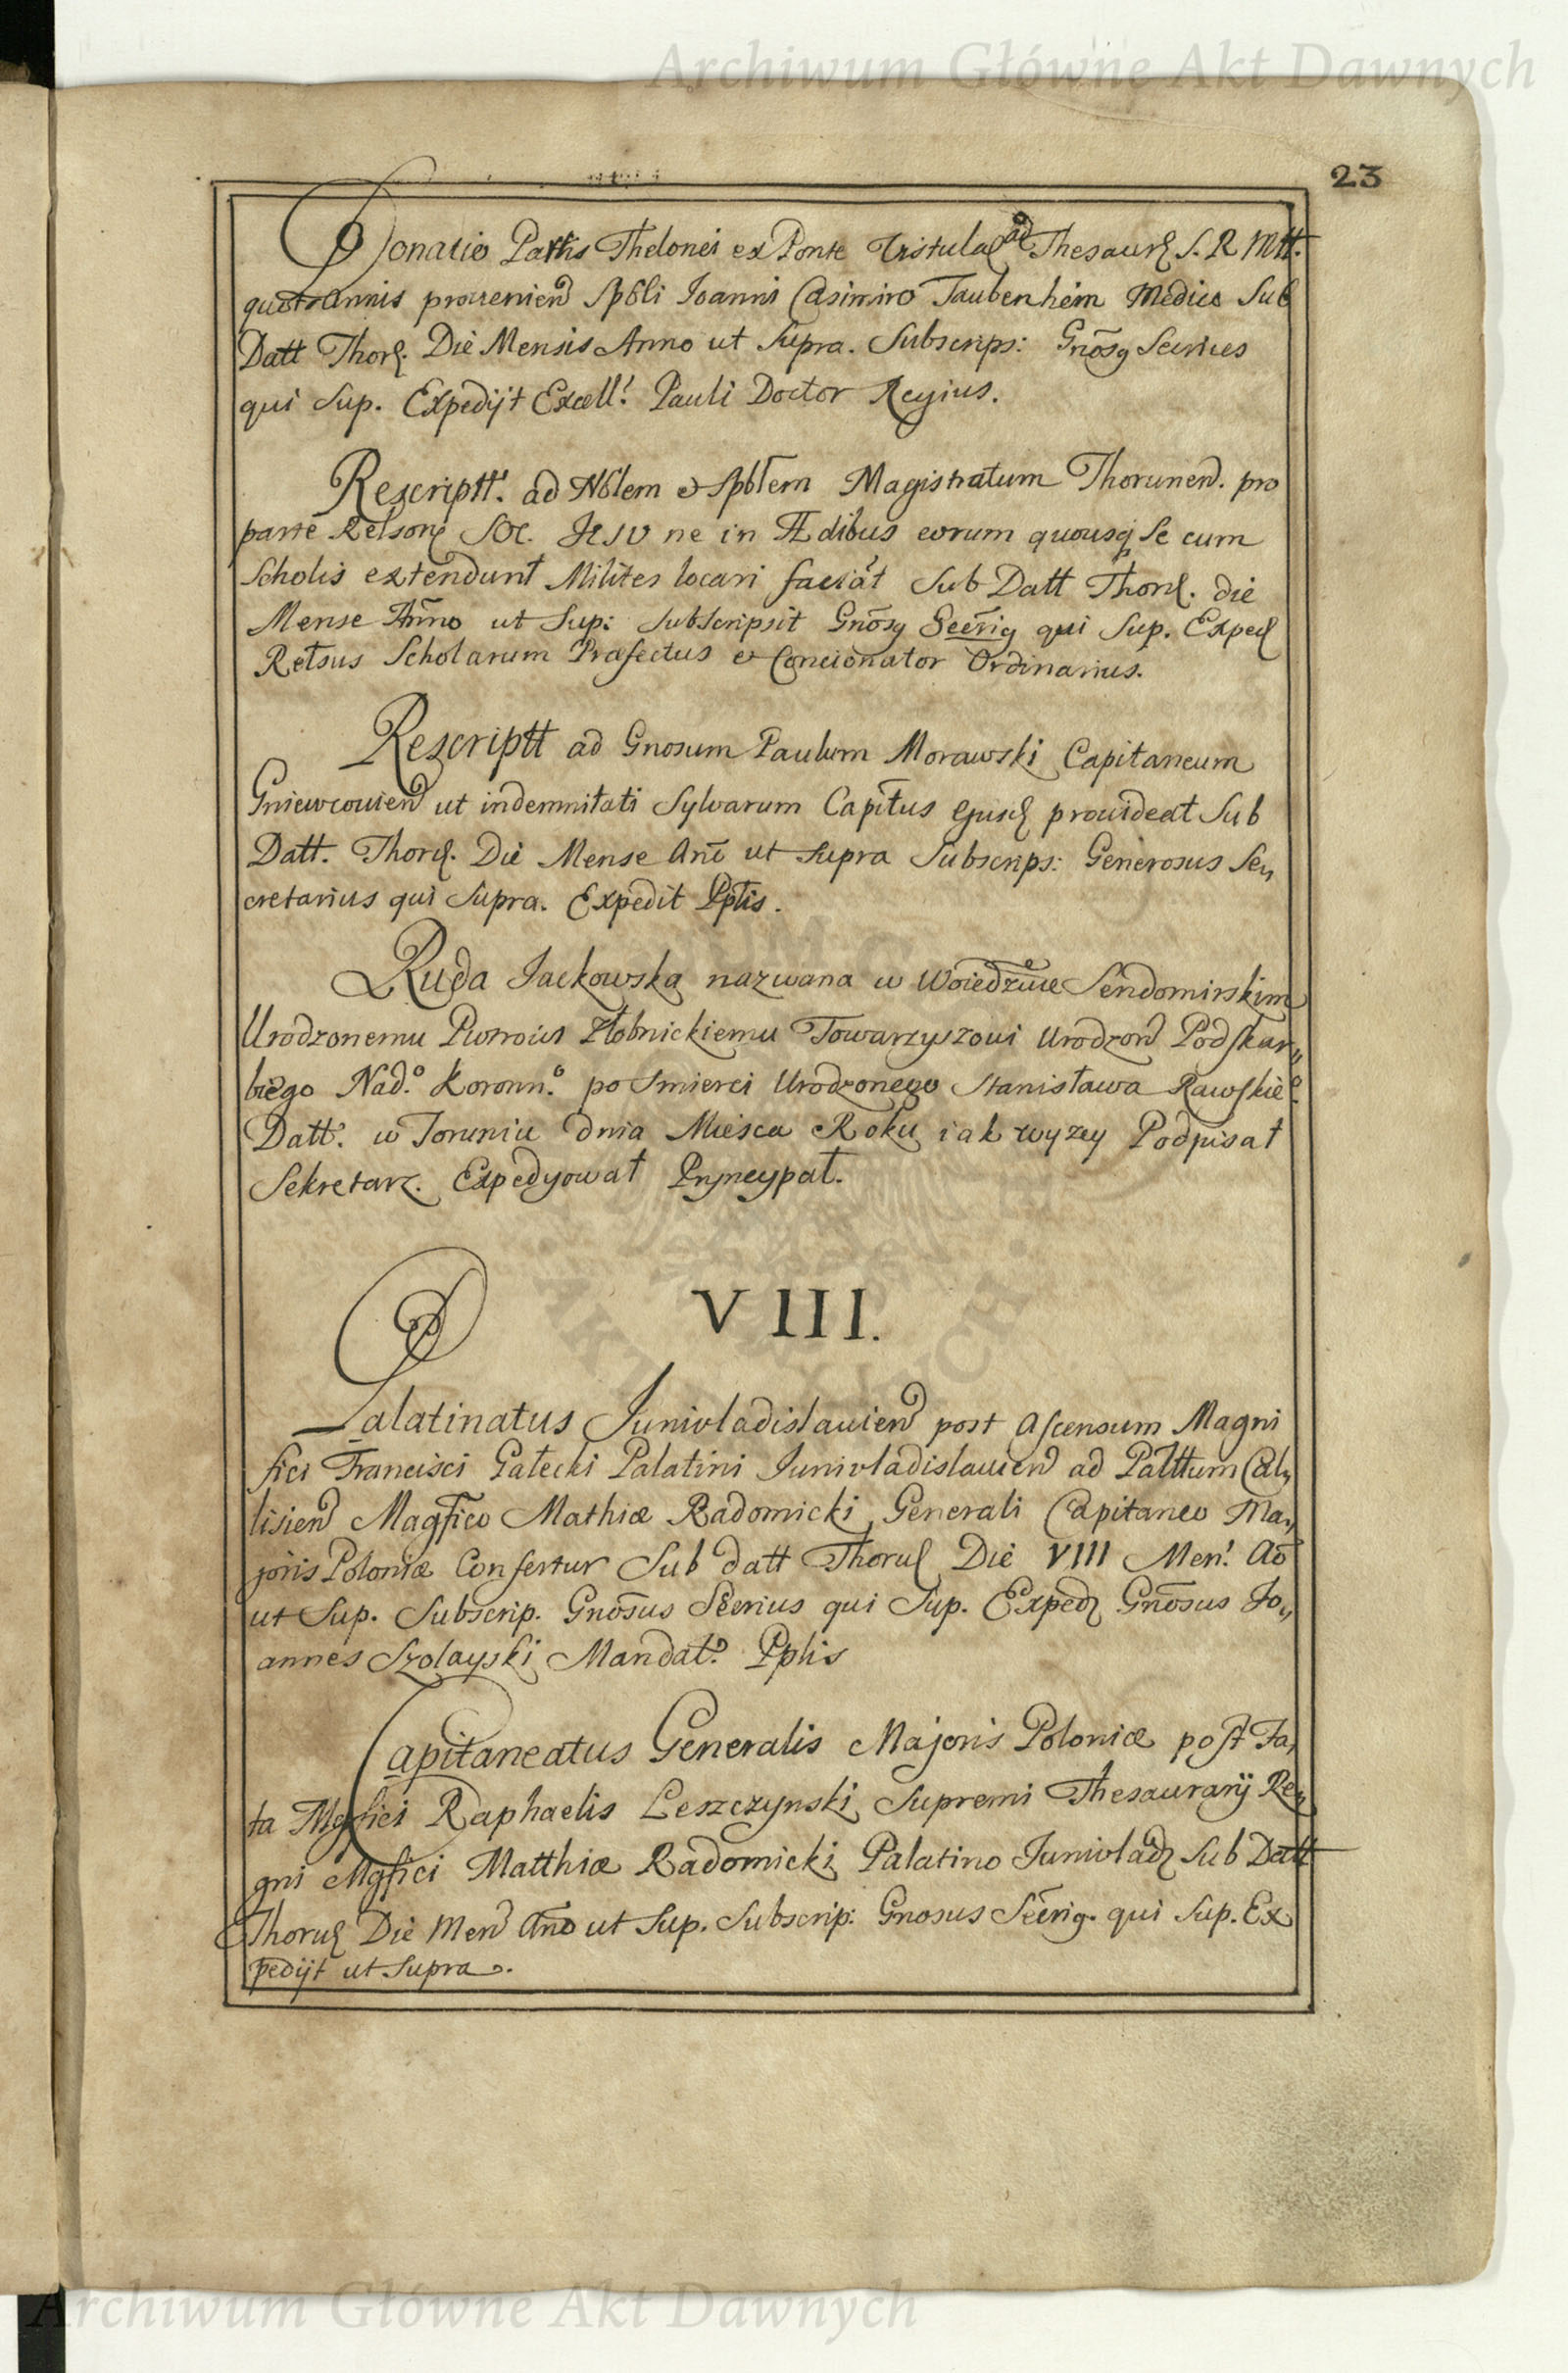 Archiwum Główne Akt Dawnych
23
Donatio Partis Thelonei ex Ponte Vistulae ad Thesaur. S. R. Mtt.
quotannis provenien Spbli Joanni Casimiro Taubenheim Medico Sub
Datt Thor. Die Mensis Anno ut Supra. Subscrips: Gnõsq Secrius
qui Sup. Expedijt Excell! Pauli Doctor Regius.
Rescriptt. ad Nblem et Spblem Magistratum Thorunen. pro
parte Relsorq Soc. JESU ne in Ædibus eorum quousq Se cum
Scholis extendunt Milites locari faciat Sub Datt Thor. die
Mense Anno ut Sup: Subscripsit Gnõsq Secrig qui Sup. Exped
Relsus Scholarum Præfectus et Concionator Ordinarius.
Rescriptt ad Gnosum Paulum Morawski Capitaneum
Gniewcovien ut indemnitati Sylvarum Capitus ejusd provideat Sub
Datt. Thor. Die Mense Ani ut Supra Subscrips: Generosus Se„
cretarius qui Supra. Expedit Pplis.
Ruda Jackowska nazwana w Woiedztwie Sendomirskim
Urodzonemu Piotrowi Złobnickiemu Towarzyszowi Urodzon Podskar„
biego Nad.º Koronn.º po Smierci Urodzonego Stanisława Rawskieº
Datt. w Toruniu dnia Miesca Roku iak wyzey Podpisał
Sekretarz. Expedyował Pryncypał.
VIII.
Palatinatus Junivladislavien post Ascensum Magni
fici Francisci Gałecki Palatini Junivladislavien ad Palttum Cal„
lisien Magfico Mathiæ Radomicki Generali Capitaneo Ma„
joris Poloniæ Confertur Sub datt Thorun Die VIII Men! Aõ
ut Sup. Subscrip. Gnõsus Secrius qui Sup. Exped Gnõsus Jo„
annes Szolayski Mandat. Pplis
Capitaneatus Generalis Majoris Poloniæ post Fa„
ta Mgfici Raphaelis Leszczynski Supremi Thesaurarij Re„
gni Mgfici Matthiæ Radomicki Palatino Junivlad Sub Datt
Thorun Die Men Ano ut Sup. Subscrip: Gnosus Secrig. qui Sup. Ex
pedijt ut Supra.
Archiwum Główne Akt Dawnych